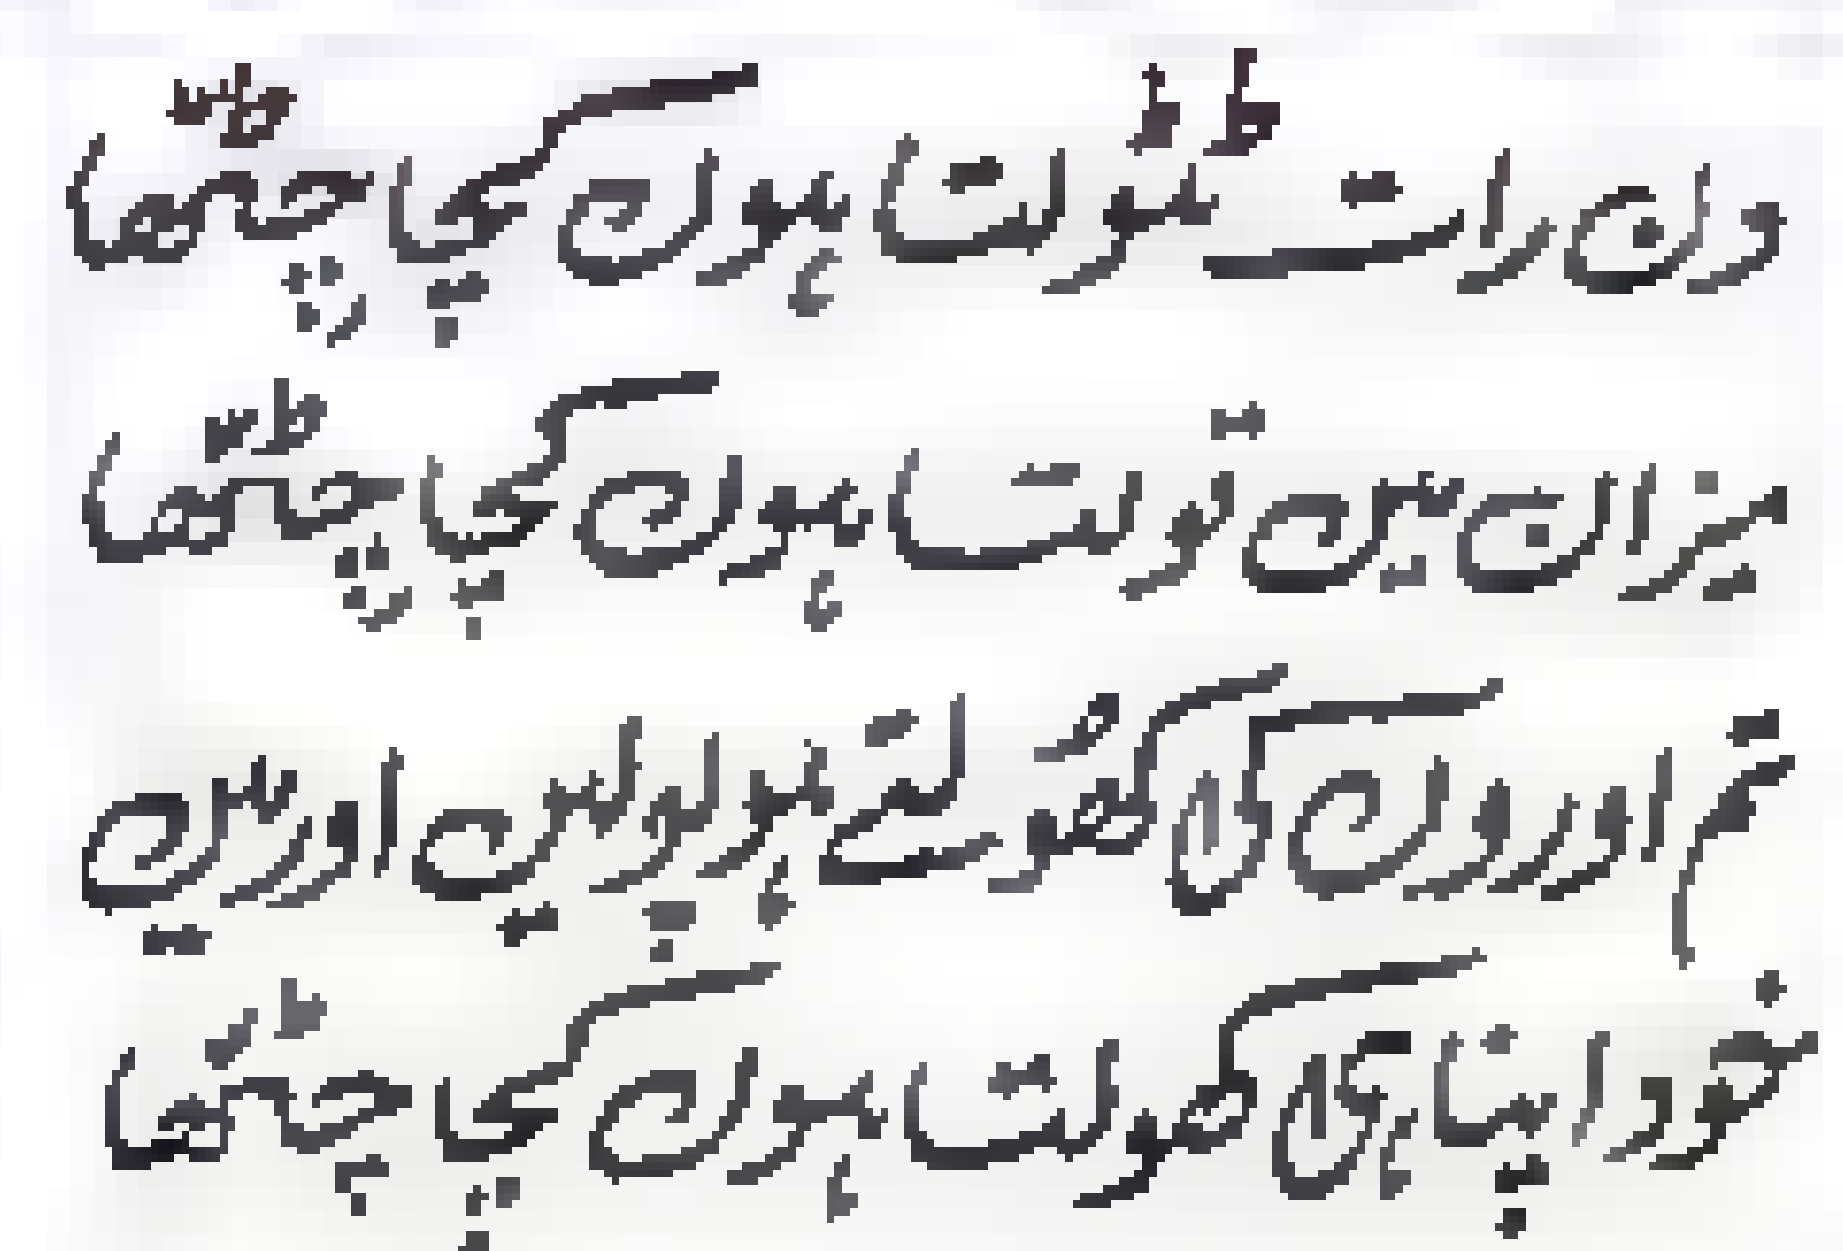 دن رات ٹٹولتا ہوں کچا چٹھا
میزان میں تولتا ہوں کچا چٹھا
تم اوروں کی کھولتے ہو پولیں اور میں
خود اپنا ہی کھولتا ہوں کچا چٹھا